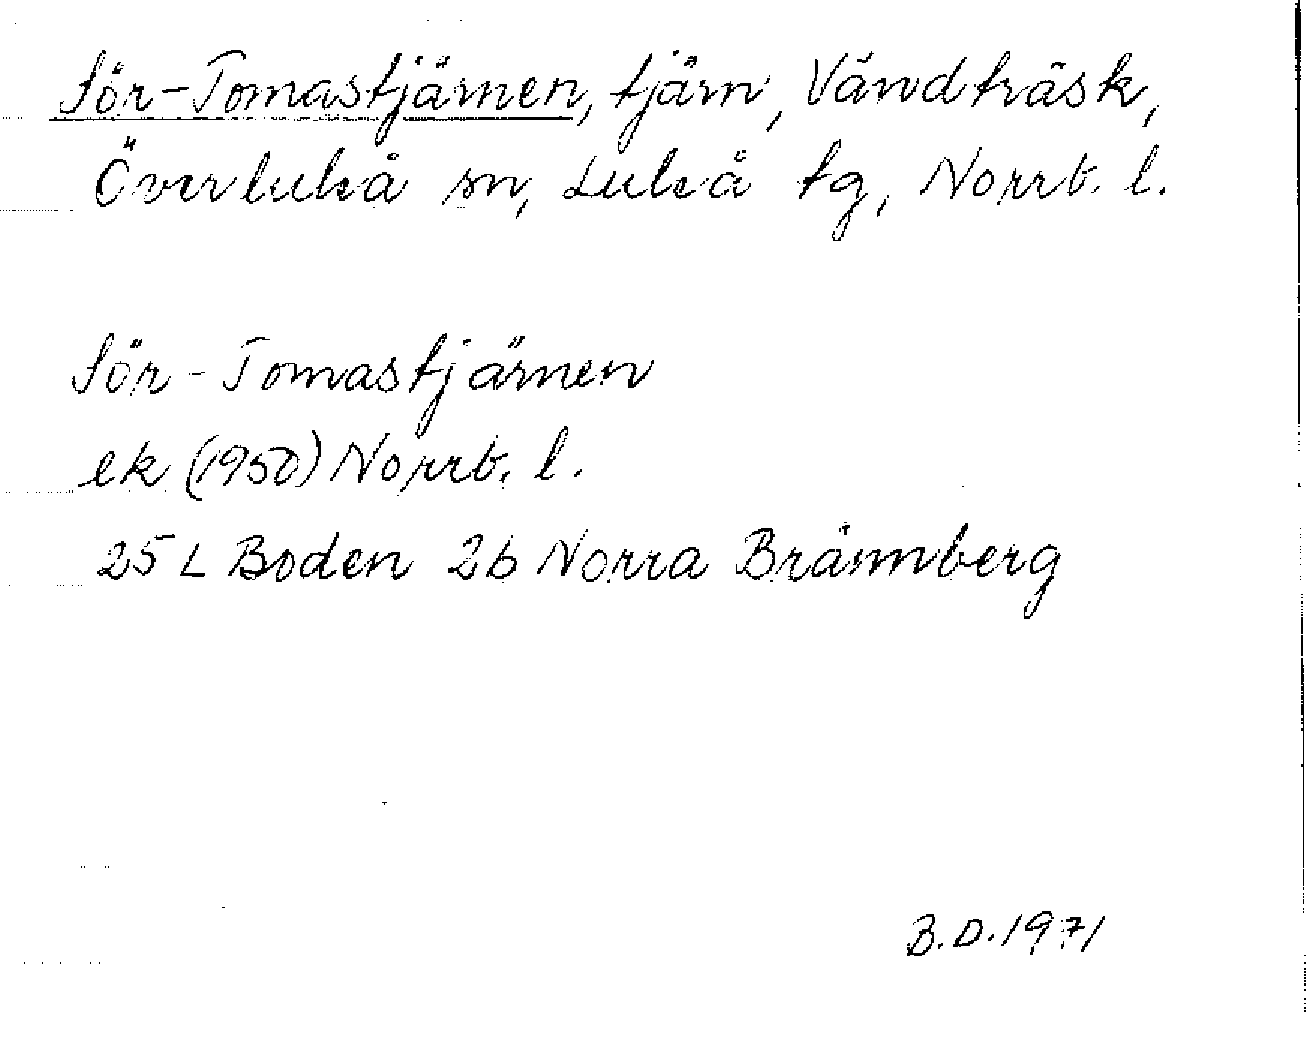 Sör-Tomastjärnen, tjärn, Vändträsk,
Överluleå sn, Luleå tg, Norrb. l.
Sör-Tomastjärnen
ek (1950) Norrb. l.
25 L Boden 2b Norra Brännberg
B.D. 1971